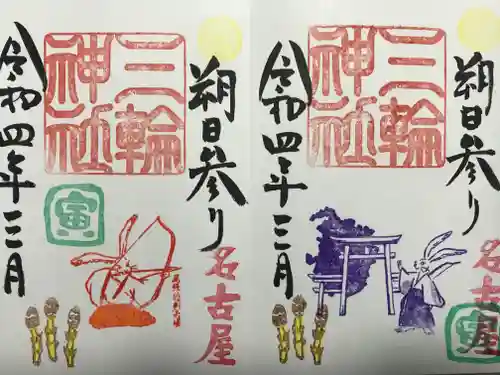 朔日参り
三輪
神社
令和四年三月
寅
名古屋
朔日参り
三輪
神社
令和四年三月
名古屋
寅